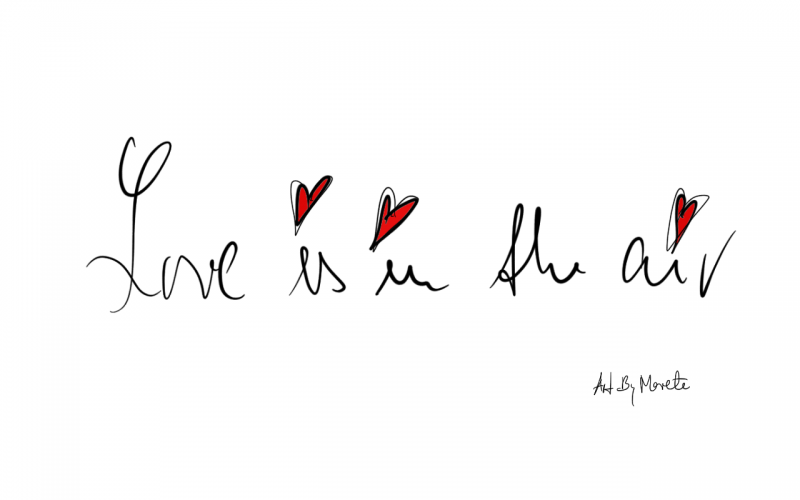 Love is in the air
Art By Merete